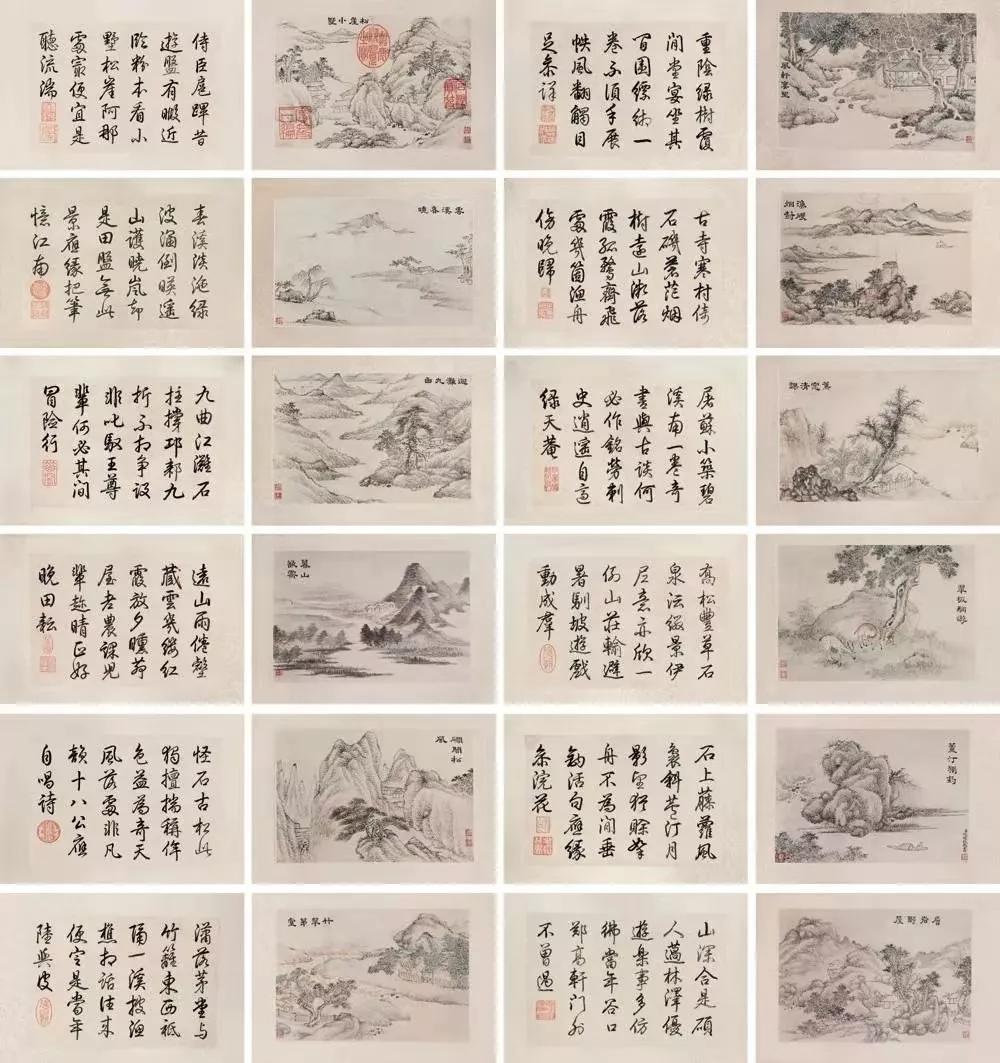 侍臣扈蹕昔
遊盤有暇近
臨粉本看小
墅松崖阿那
處最便宜是
聽流湍
松崖小墅
重陰綠樹覆
閒堂宴坐其
間圍縹緗一
卷不須手展
帙風翻觸目
足參詳
春溪淡沲綠
波涵倒暎遙
山護曉嵐却
是田盤無此
景應緣把筆
憶江南
霅溪春曉
古寺寒村倚
石磯蒼茫烟
樹遠山微落
霞孤鶩齊飛
處幾箇漁舟
傍晚歸
漁磯
烟樹
九曲江灘石
拄撐邛郲九
折不相爭設
非叱馭王尊
輩何必其間
冒險行
迴灘九曲
屠蘇小築碧
溪南一卷奇
書與古談何
必作銘勞刺
史逍遙自適
綠天菴
蕉窓清課
遠山雨倦壑
藏雲幾縷紅
霞放夕曛茆
屋老農課兒
輩趂晴正好
晚田耘
暮山
斂霽
喬松豐草石
泉沄緩景伊
尼意亦欣一
例山莊輪避
暑馴坡遊戲
動成羣
怪石古松此
獨擅揣稱侔
色益為奇天
風落處非凡
韻十八公應
自唱詩
磵閣松
風
石上藤蘿風
裊斜荻汀月
影望猶賒拏
舟不為閒垂
釣活句應緣
参浣花
荻汀獨釣
瀟落茅堂與
竹籬東西祗
隔一溪披漁
樵相話往来
便定是當年
陸與皮
竹翠茅堂
山深合是碩
人薖林澤優
遊樂事多仿
彿當年谷口
鄭高軒門外
不曾過
層岩野屋